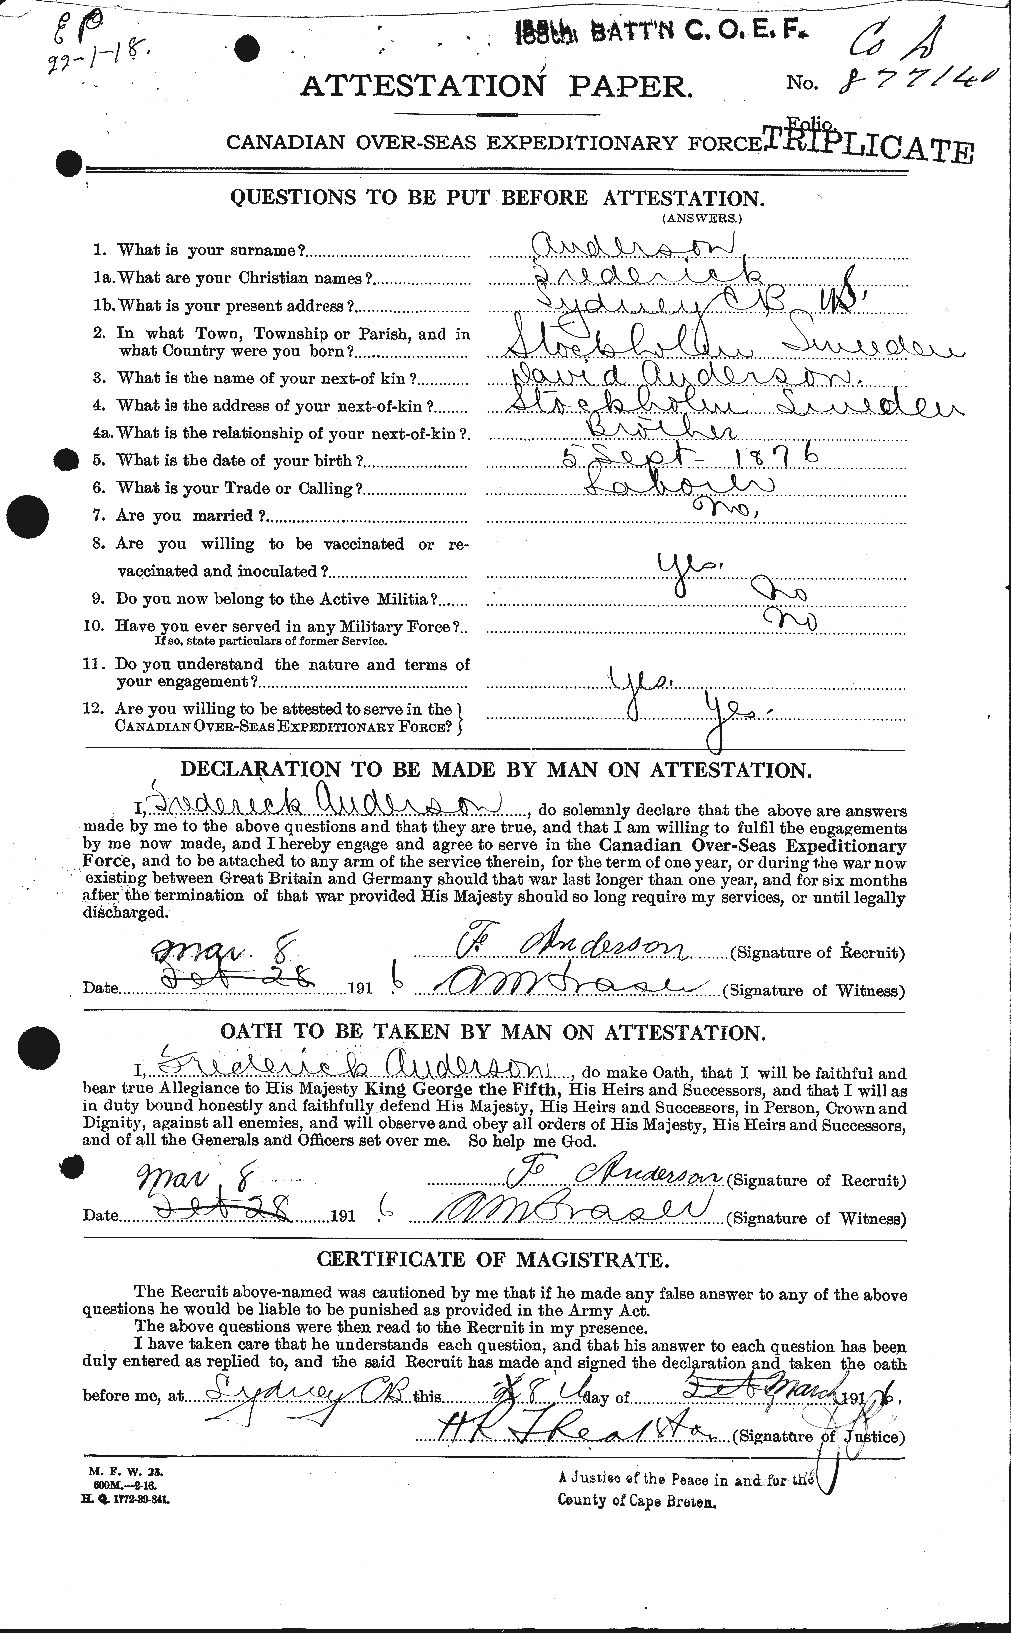 EP
22-1-18.
BATT'N C. O. E. F.
Co D
ATTESTATION PAPER.
No. 877140
Folio.
CANADIAN OVER-SEAS EXPEDITIONARY FORCE
TRIPLICATE
QUESTIONS TO BE PUT BEFORE ATTESTATION.
(ANSWERS.)
1. What is your surname? Anderson
1a. What are your Christian names? Frederick
1b. What is your present address? Sydney CB NS.
2. In what Town, Township or Parish, and in
what Country were you born? Stockholm Sweeden
3. What is the name of your next-of kin? David Anderson.
4. What is the address of your next-of-kin? Stockholm Sweeden
4a. What is the relationship of your next-of-kin? Brother
5. What is the date of your birth? 5 Sept - 1876
6. What is your Trade or Calling? Laborer
7. Are you married? No.
8. Are you willing to be vaccinated or re-
vaccinated and inoculated? Yes.
9. Do you now belong to the Active Militia? No
10. Have you ever served in any Military Force? No
If so, state particulars of former Service.
11. Do you understand the nature and terms of
your engagement? Yes.
12. Are you willing to be attested to serve in the
CANADIAN OVER-SEAS EXPEDITIONARY FORCE? Yes.
DECLARATION TO BE MADE BY MAN ON ATTESTATION.
I, Frederick Anderson, do solemnly declare that the above are answers
made by me to the above questions and that they are true, and that I am willing to fulfil the engagements
by me now made, and I hereby engage and agree to serve in the Canadian Over-Seas Expeditionary
Force, and to be attached to any arm of the service therein, for the term of one year, or during the war now
existing between Great Britain and Germany should that war last longer than one year, and for six months
after the termination of that war provided His Majesty should so long require my services, or until legally
discharged.
Mar. 8 F. Anderson (Signature of Recruit)
Date Feb 28 1916 A M Fraser (Signature of Witness)
OATH TO BE TAKEN BY MAN ON ATTESTATION.
I, Frederick Anderson, do make Oath, that I will be faithful and
bear true Allegiance to His Majesty King George the Fifth, His Heirs and Successors, and that I will as
in duty bound honestly and faithfully defend His Majesty, His Heirs and Successors, in Person, Crown and
Dignity, against all enemies, and will observe and obey all orders of His Majesty, His Heirs and Successors,
and of all the Generals and Officers set over me. So help me God.
Mar. 8 F. Anderson (Signature of Recruit)
Date Feb 28 1916 A M Fraser (Signature of Witness)
CERTIFICATE OF MAGISTRATE.
The Recruit above-named was cautioned by me that if he made any false answer to any of the above
questions he would be liable to be punished as provided in the Army Act.
The above questions were then read to the Recruit in my presence.
I have taken care that he understands each question, and that his answer to each question has been
duly entered as replied to, and the said Recruit has made and signed the declaration and taken the oath
before me, at Sydney CB this 8 day of Feb March 1916.
(Signature of Justice)
M. F. W. 23.
600M.-2-16.
H. Q. 1772-39-841.
A Justice of the Peace in and for the
County of Cape Breton.